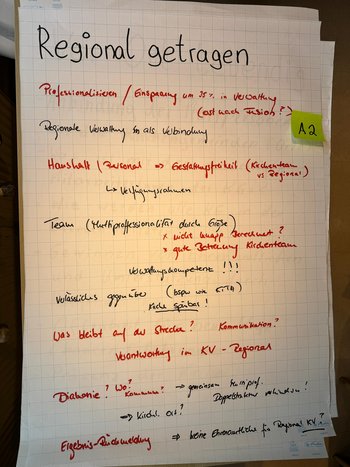 Regional getragen
Professionalisieren / Einsparung um 35% in Verwaltung
(erst nach Fusion?)
A2
Regionale Verwaltung als Verbindung
Haushalt / Personal ⇒ Gestaltungsfreiheit (Kirchenteam
vs Regional)
↳ Verfügungsrahmen
Team (Multiprofessionalität durch Größe)
x nicht knapp Berechnet?
x gute Betreuung Kirchenteam
Verwaltungskompetenz!!!
Verlässliches gegenüber (bspw wie KITA)
Kirche spürbar!
Was bleibt auf der Strecke? Kommunikation?
Verantwortung im KV - Regional
Diakonie? Wo? → gemeinsam
Kommune? Doppelstruktur
→ Kirchl. Ort?
Ergebnis-Rückmeldung ⇒ keine Ehrenamtliche für Regional KV?